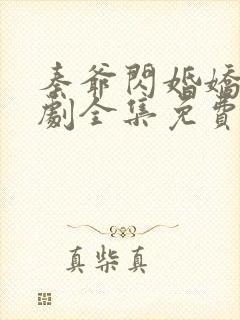 秦爺閃婚嬌
劇全集免費
真柴真